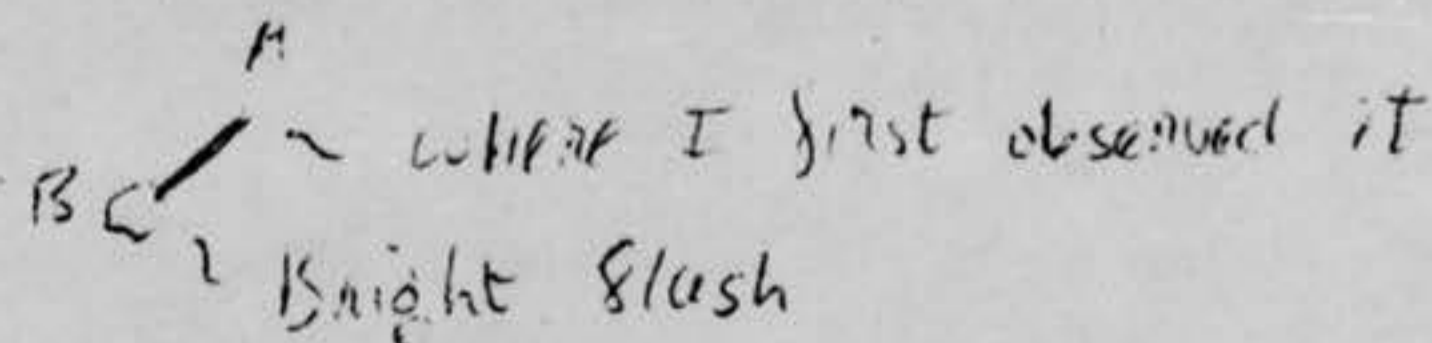 A
where I first observed it
B
Bright flash